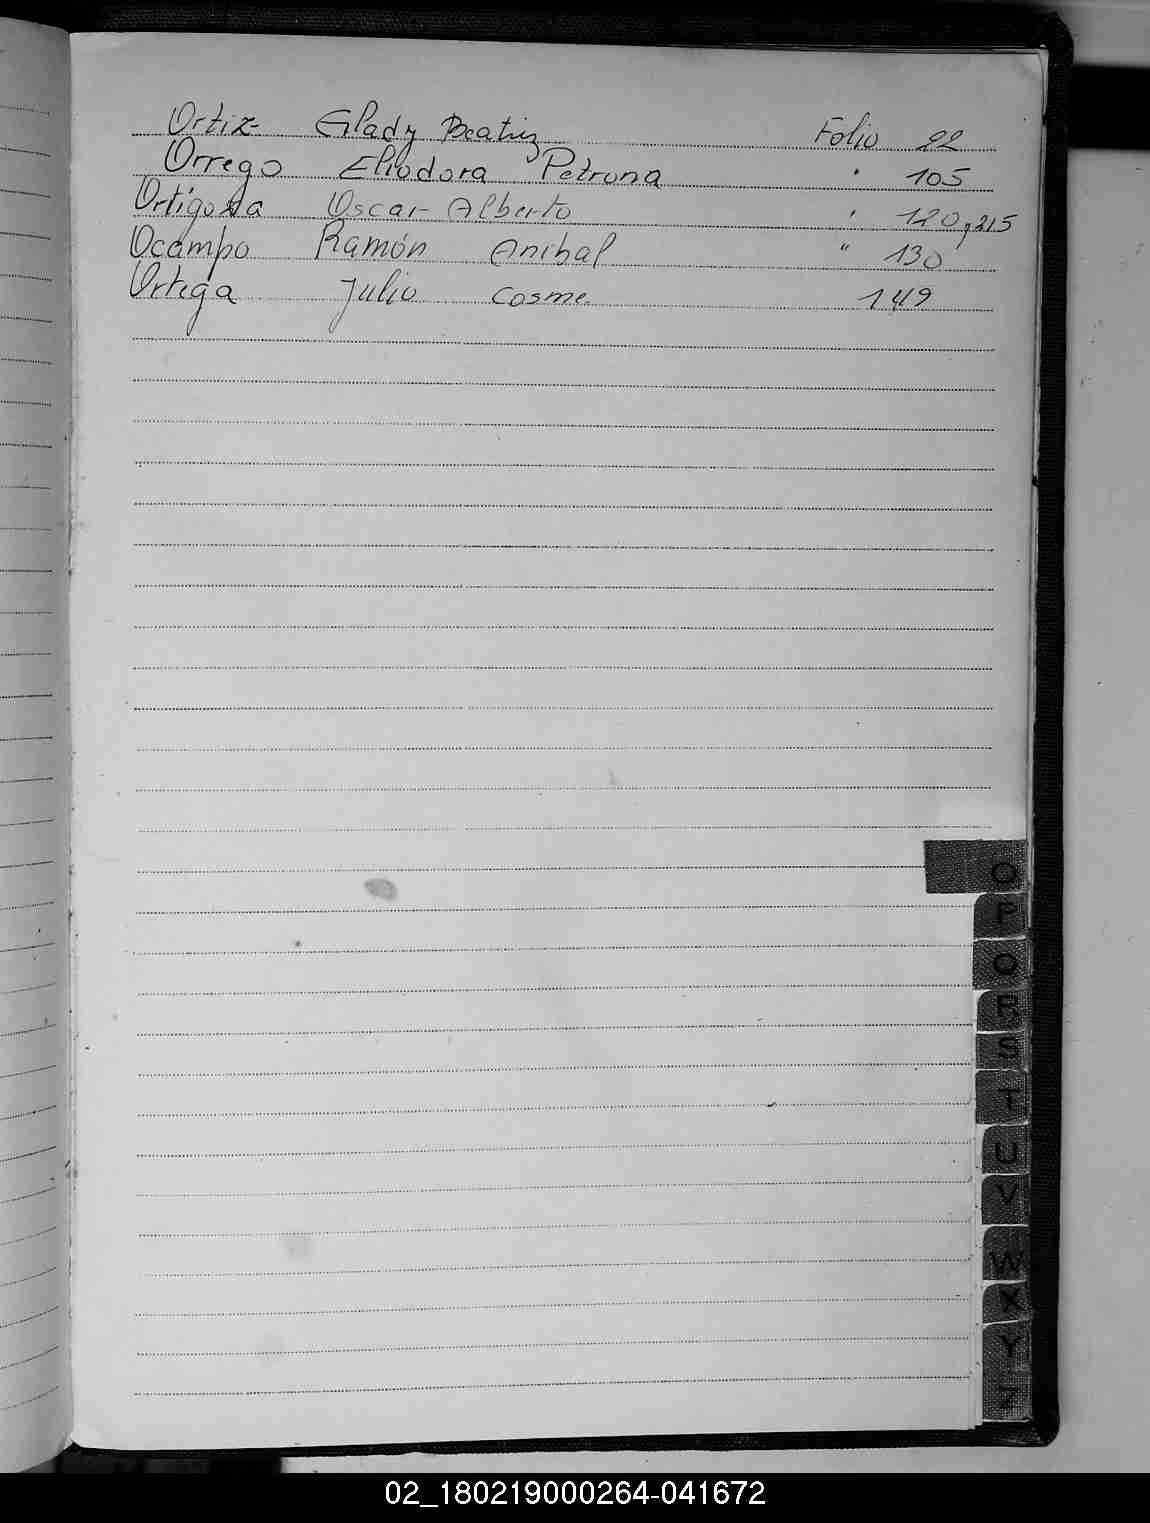 Ortiz Glady Beatriz Folio 22
Orrego Eliodora Petrona " 105
Ortigoza Oscar Alberto " 120, 215
Ocampo Ramón Anibal " 130
Ortega Julio Cosme 149
O
P
Q
R
S
T
U
V
W
X
Y
Z
02_180219000264-041672